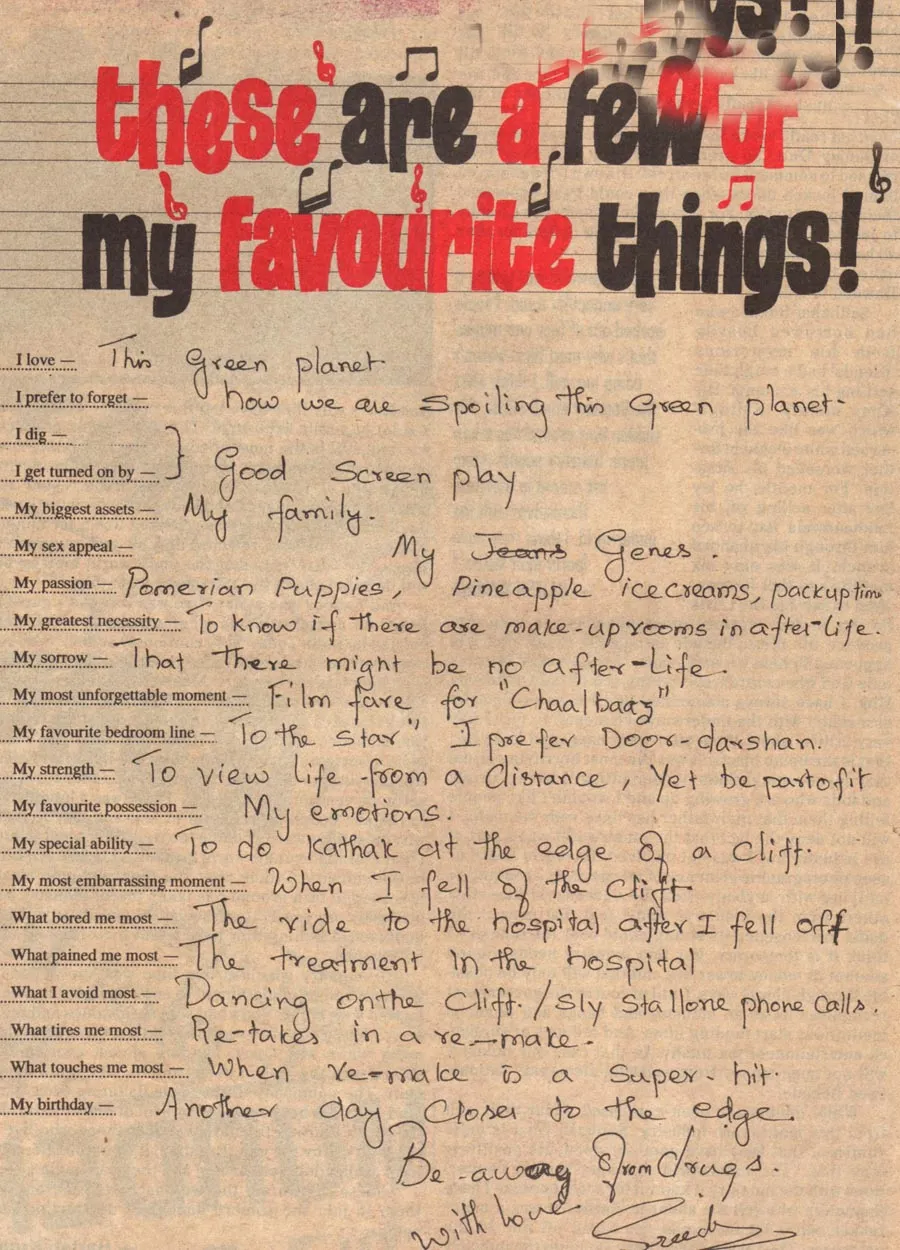 these are a few of
my favourite things!
I love — This Green planet
I prefer to forget — how we are spoiling this Green planet-
I dig —
I get turned on by — } Good Screen play
My biggest assets — My family.
My sex appeal — My Jeans Genes.
My passion — Pomerian Puppies, Pineapple icecreams, packup time
My greatest necessity — To know if there are make-up rooms in after-life.
My sorrow — That there might be no after-life.
My most unforgettable moment — Film fare for "Chaalbaaz"
My favourite bedroom line — "To the star" I prefer Door-darshan.
My strength — To view life from a distance, Yet be part of it
My favourite possession — My emotions.
My special ability — To do Kathak at the edge of a Clift.
My most embarrassing moment — When I fell of the Clift
What bored me most — The ride to the hospital after I fell off
What pained me most — The treatment in the hospital
What I avoid most — Dancing on the Clift. / Sly Stallone phone calls.
What tires me most — Re-takes in a re-make.
What touches me most — When re-make is a Super-hit.
My birthday — Another day closer to the edge.
Be-away from drugs.
With love